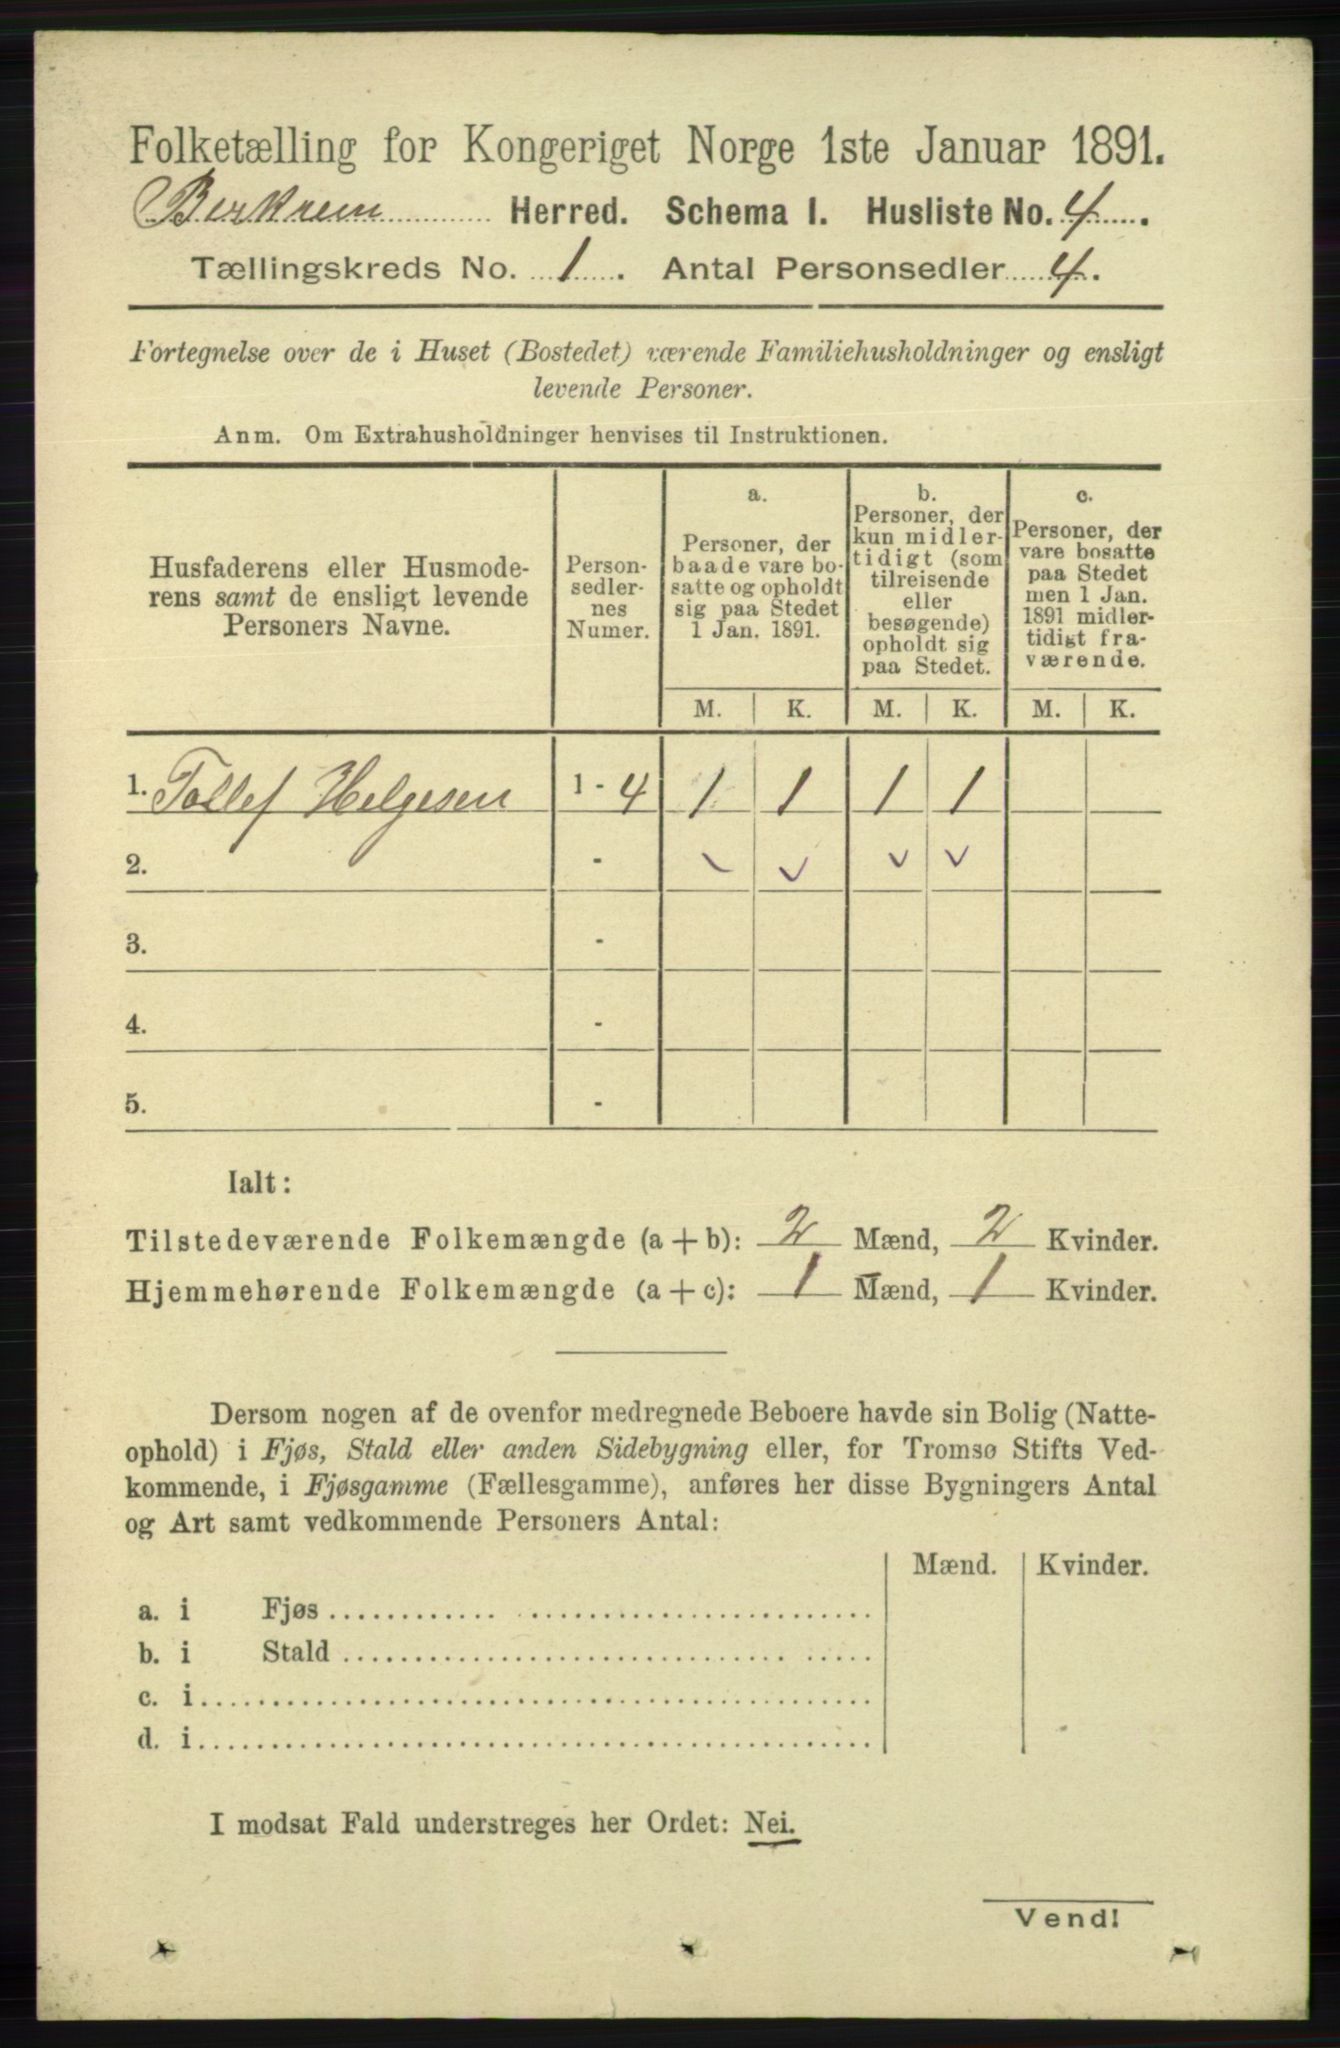 Folketælling for Kongeriget Norge 1ste Januar 1891.
Birkrem Herred. Schema I. Husliste No. 4.
Tællingskreds No. 1. Antal Personsedler 4.
Fortegnelse over de i Huset (Bostedet) værende Familiehusholdninger og ensligt
levende Personer.
Anm. Om Extrahusholdninger henvises til Instruktionen.
Husfaderens eller Husmode-
rens samt de ensligt levende
Personers Navne.
Person-
sedler-
nes
Numer.
a.
Personer, der
baade vare bo-
satte og opholdt
sig paa Stedet
1 Jan. 1891.
b.
Personer, der
kun midler-
tidigt (som
tilreisende
eller
besøgende)
opholdt sig
paa Stedet.
c.
Personer, der
vare bosatte
paa Stedet
men 1 Jan.
1891 midler-
tidigt fra-
værende.
M. K. M. K. M. K.
1. Tollef Helgesen 1 - 4 1 1 1 1
2. - ✓ ✓ ✓ ✓
3. -
4. -
5. -
Ialt:
Tilstedeværende Folkemængde (a + b): 2 Mænd, 2 Kvinder.
Hjemmehørende Folkemængde (a + c): 1 Mænd, 1 Kvinder.
Dersom nogen af de ovenfor medregnede Beboere havde sin Bolig (Natte-
ophold) i Fjøs, Stald eller anden Sidebygning eller, for Tromsø Stifts Ved-
kommende, i Fjøsgamme (Fællesgamme), anføres her disse Bygningers Antal
og Art samt vedkommende Personers Antal:
Mænd. Kvinder.
a. i Fjøs
b. i Stald
c. i
d. i
I modsat Fald understreges her Ordet: Nei.
Vend!